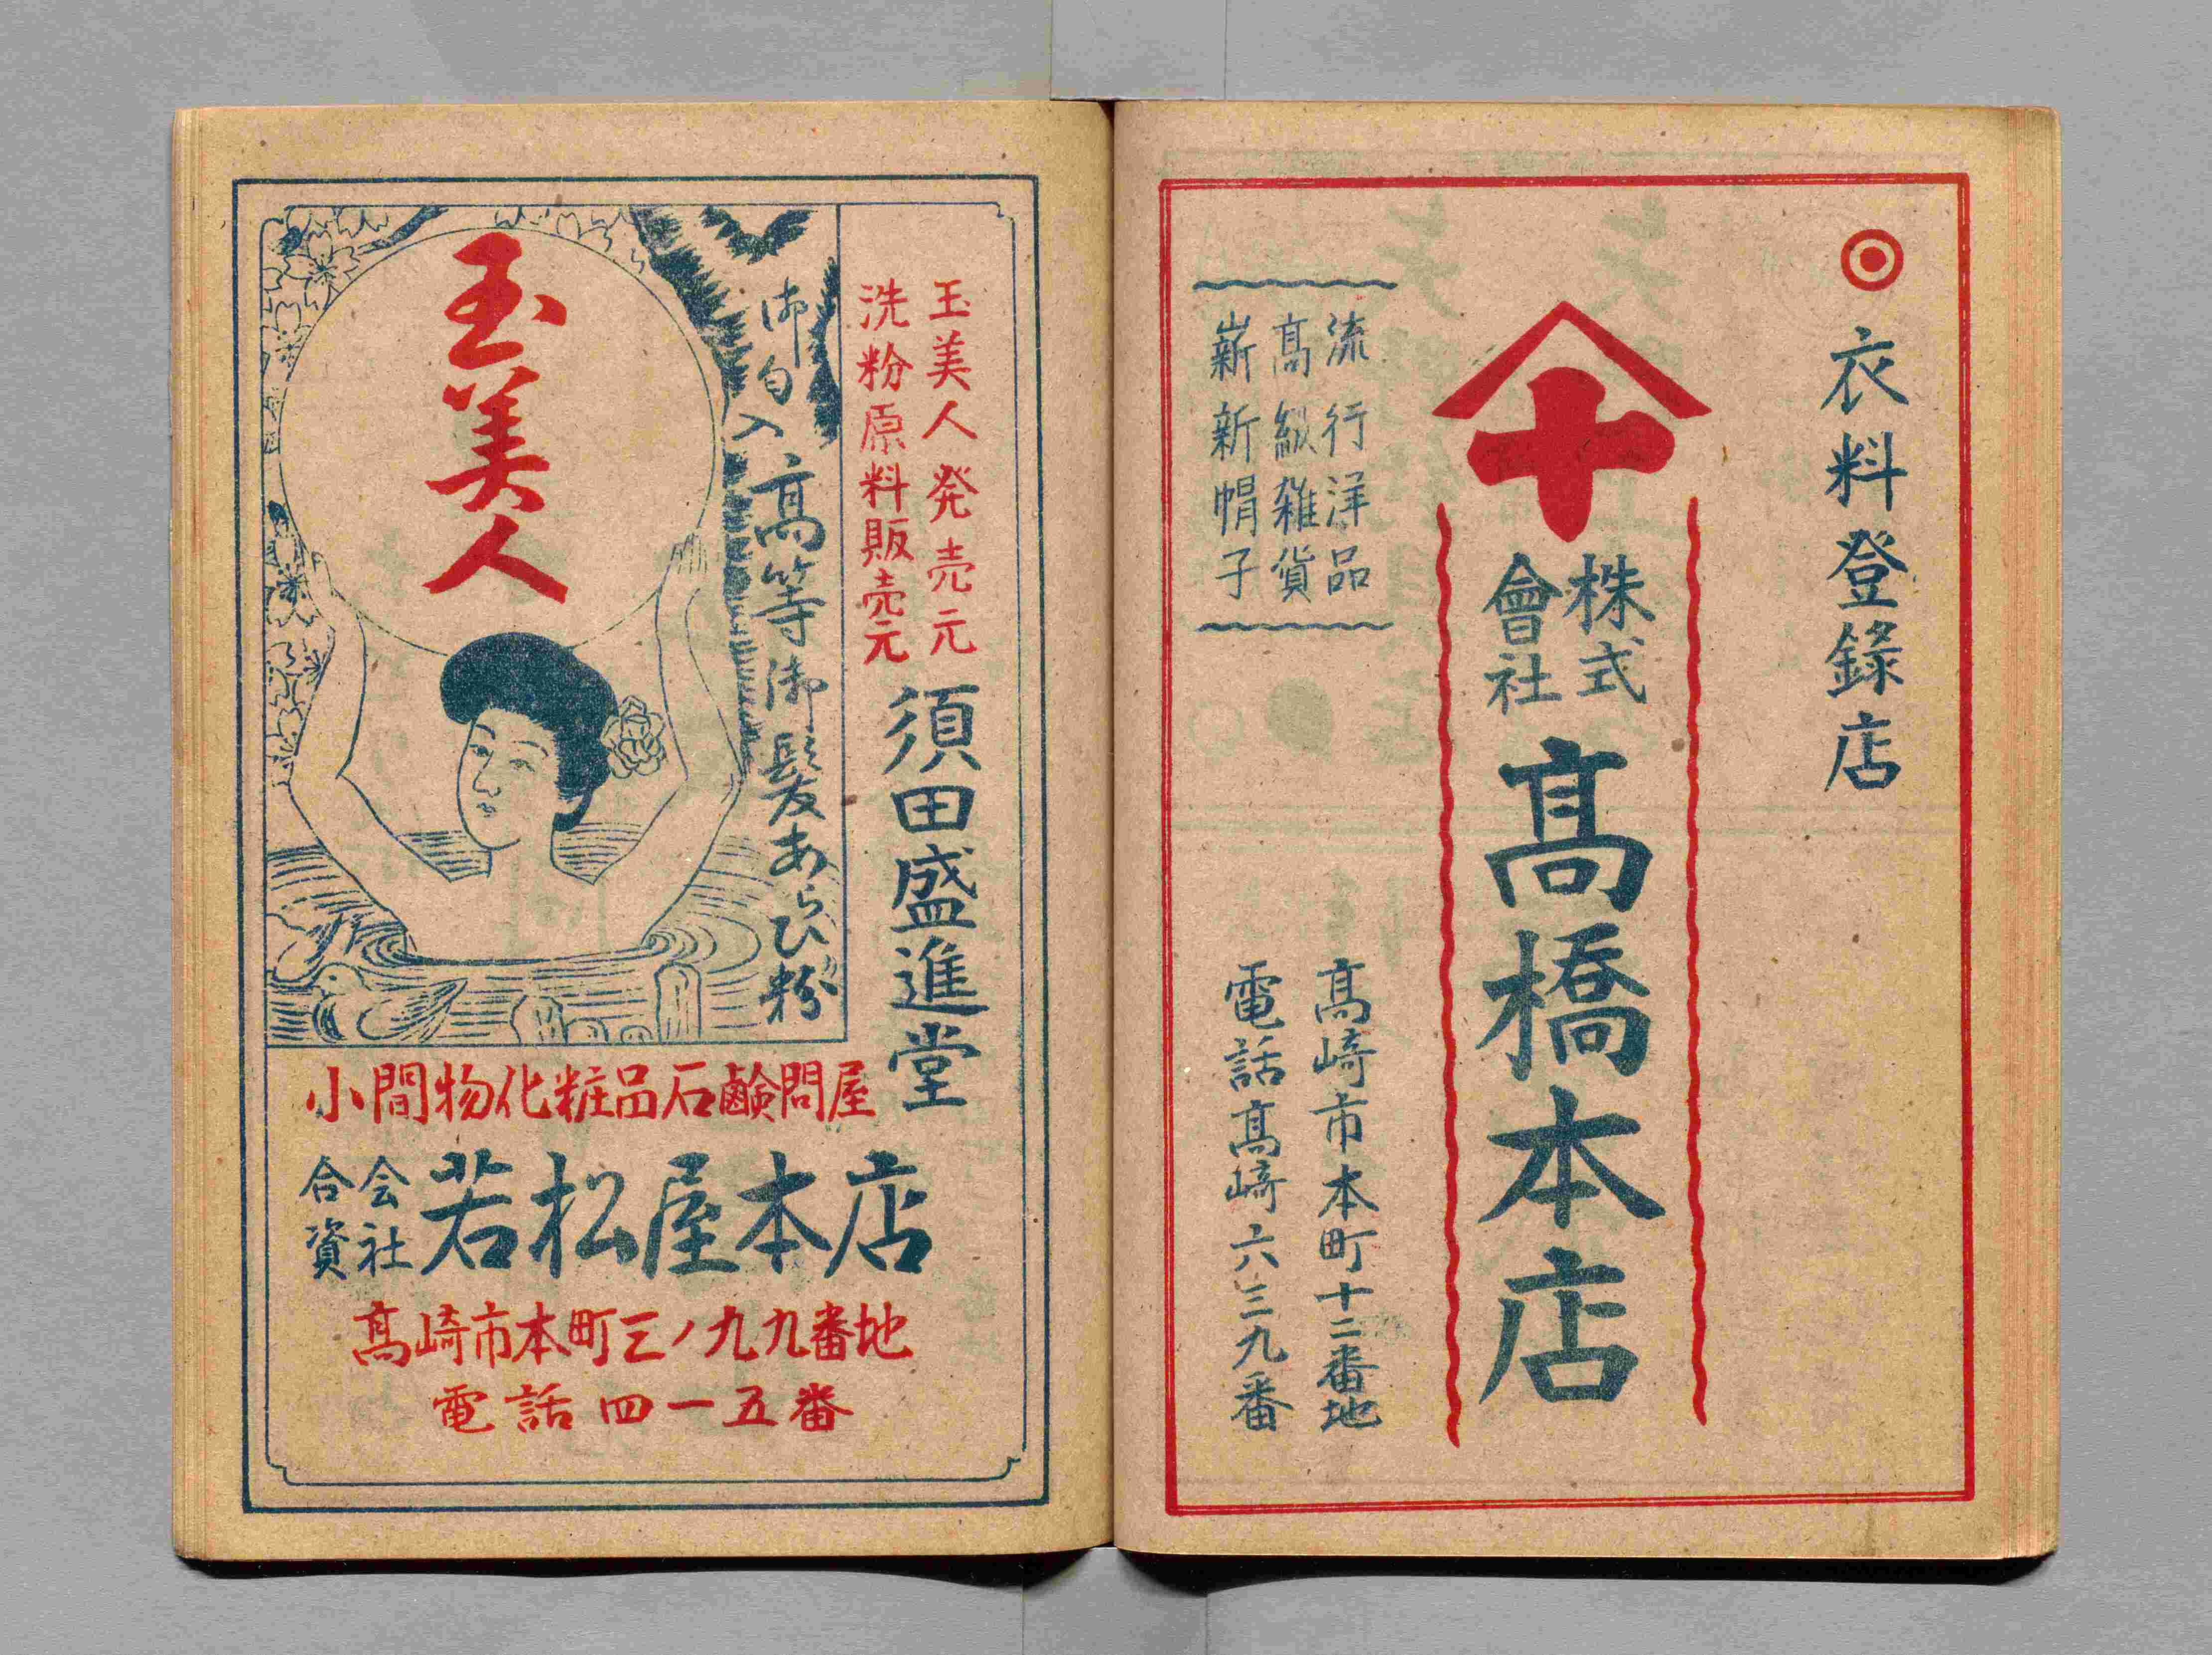 衣料登錄店
十
株式
會社
髙橋本店
流行洋品
髙級雑貨
嶄新帽子
髙崎市本町十二番地
電話髙崎六三九番
玉美人発売元
洗粉原料販売元
須田盛進堂
御匂入高等御髪あらひ粉
玉美人
小間物化粧品石鹸問屋
合資
会社
若松屋本店
髙崎市本町三ノ九九番地
電話四一五番